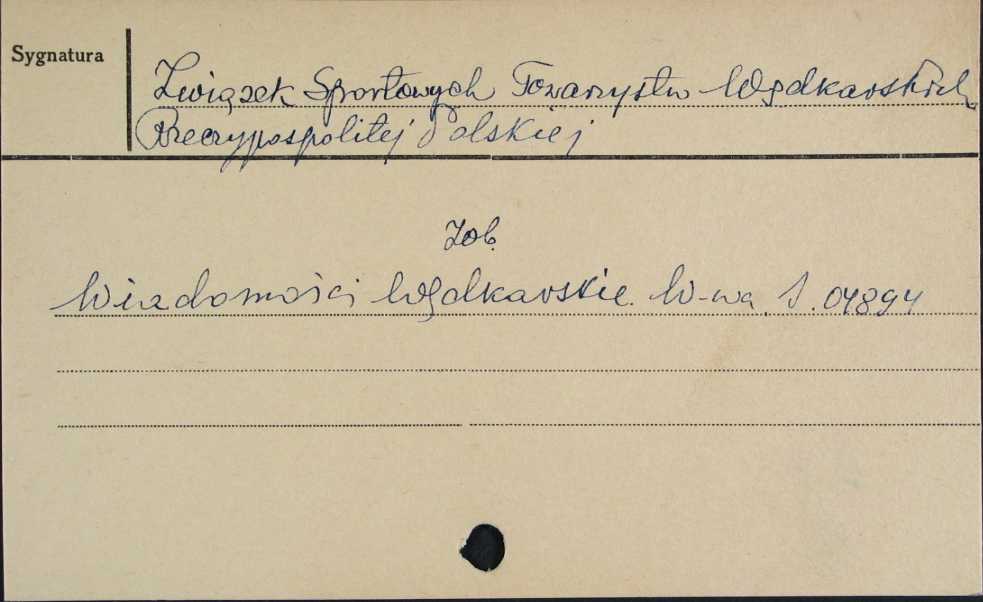 Sygnatura
Związek Sportowych Towarzystw Wędkarskich
Rzeczypospolitej Polskiej
Zob.
Wiadomości Wędkarskie. W-wa, S. 04894